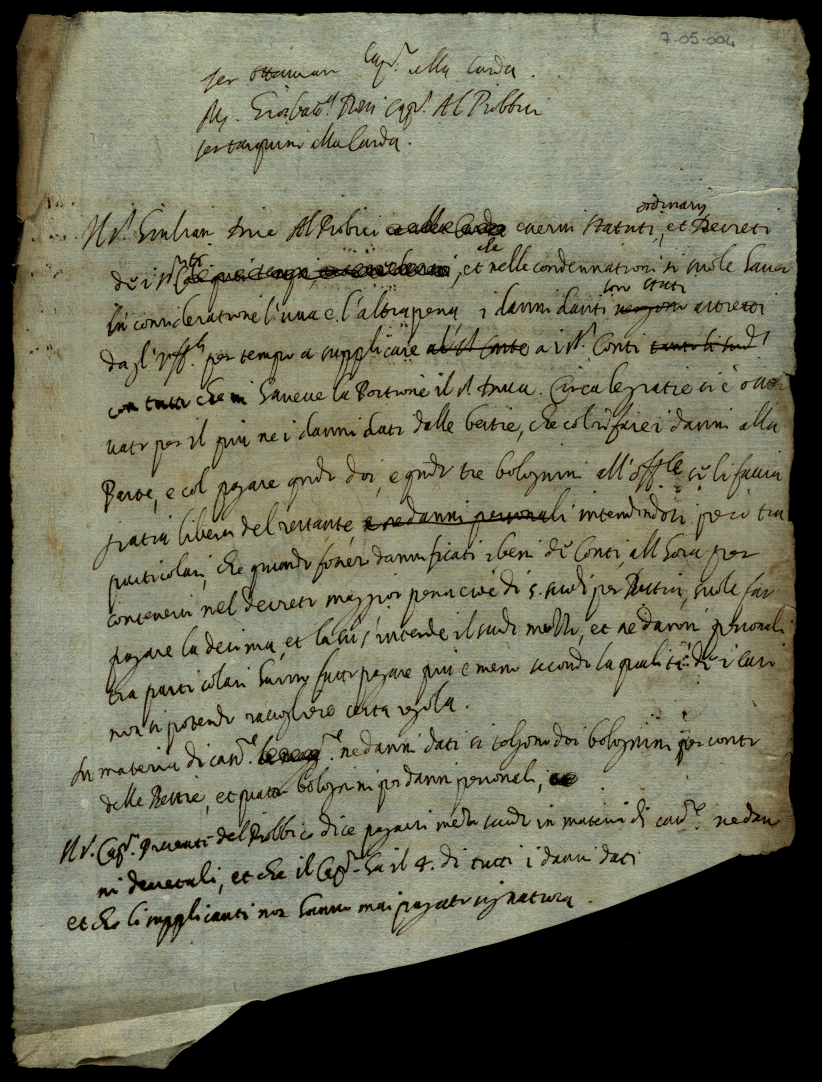 7-05-004
ser Ottaviano Cap.º alla Carda.
M. Gio: Cap.º Al Piobbici
ser tarquinio alla Carda.
Il s.r Giulian dice Al Piobici esservi statuti ordinarij, et Decreti
de i s.ri, et nelle condennationi si suole haver
in consideratione l'una e l'altra pena i danni danti son stati astretti
dagl'uff.li per tempo a supplicare al s.r Conte a i s.ri Conti
con tutto che haveue la Portione il s.r Duca. Circa le gratie si è osser
vato per il più ne i danni dati dalle bestie, che col rifare i danni alla
Parte, e col pagare quando doi, e quando tre bolognini all'offle se li facia
gratia libera del restante e ne danni personali intendendosi però tra
particolari, che quando fosser dannificati i beni de Conti, all hora per
contenersi nel decreto maggior pena cioè di 5. scudi per Bestia, suole far
pagare la decima, et la s'intende il scudo mezzo, et ne danni personali
tra particolari hanno fatto pagare più e meno secondo la qualità de i casi
non si potendo raccogliere certa regola.
In materia di ne danni dati si tolgono doi bolognini per conto
delle Bestie, et quatro bolognini per danni personali,
Il s.r Cap.º Presente del Piobbico dice pagarsi mezzo scudo in materia di ne dan
ni decretali, et che il Cap.º ha il 4. di tutti i danni dati
et che li supplicanti non hanno mai pagato signatura.